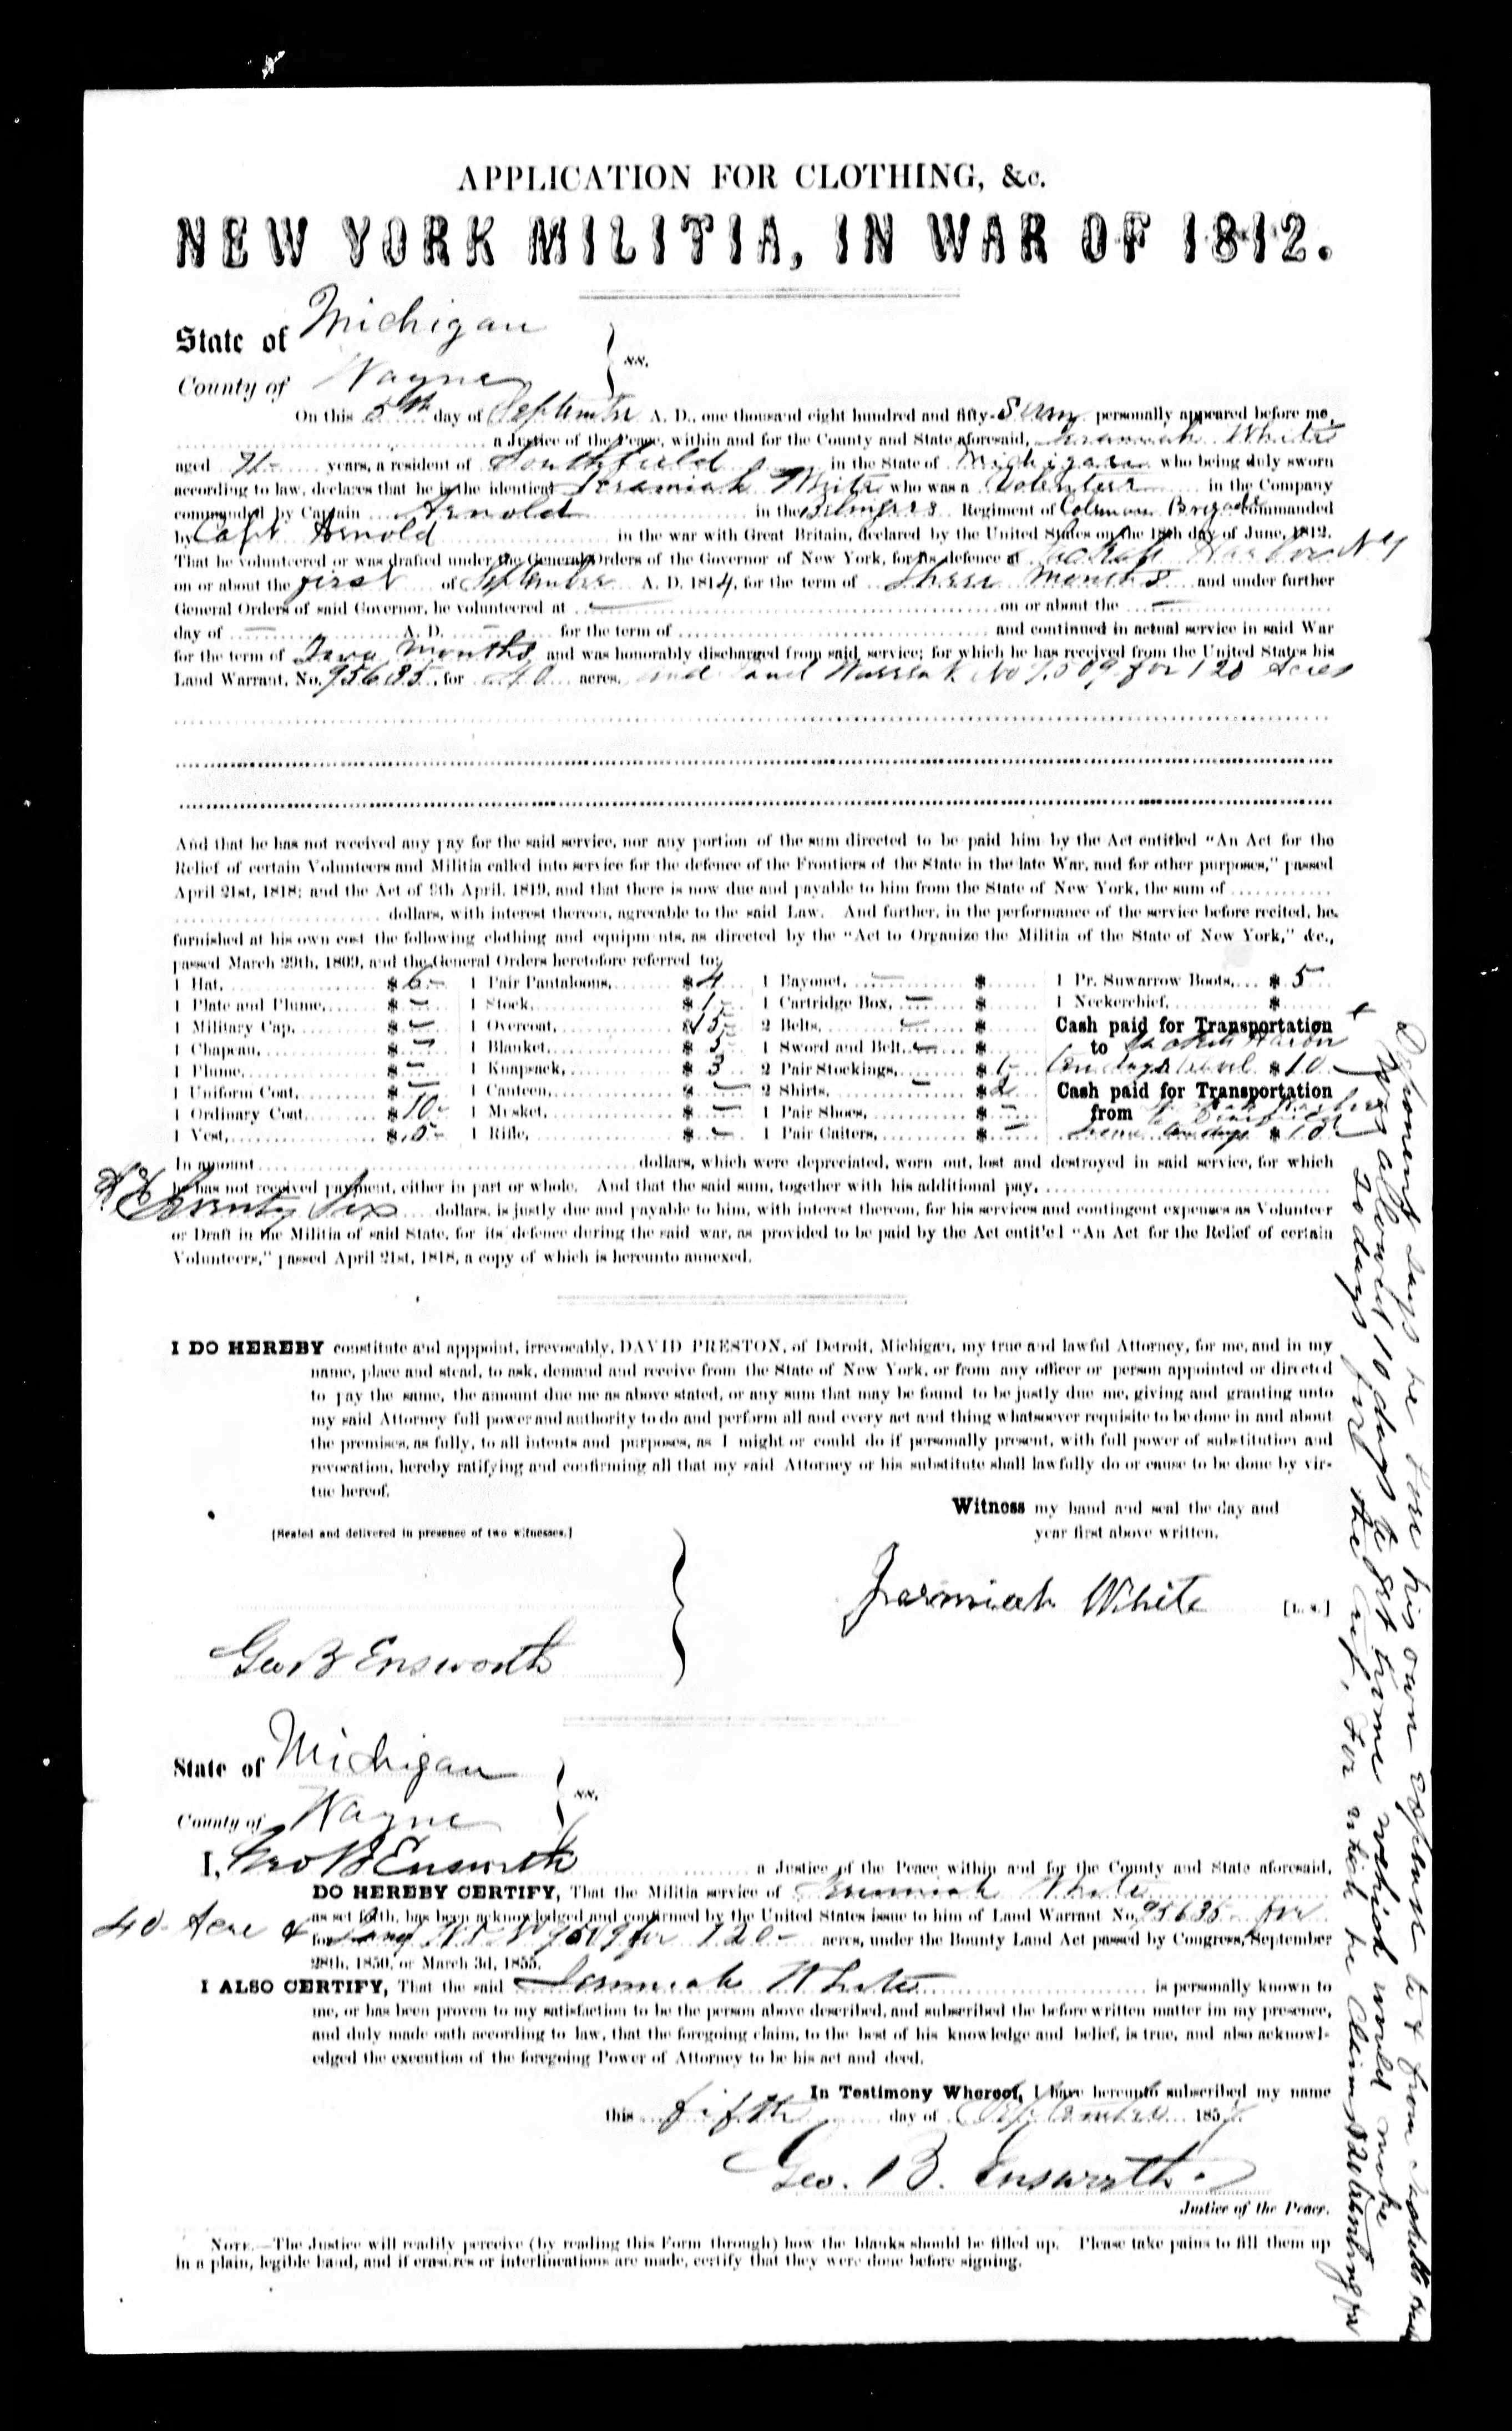 APPLICATION FOR CLOTHING, &c.
NEW YORK MILITIA, IN WAR OF 1812.
State of Michigan
County of Wayne } ss.
On this 5th day of September A. D., one thousand eight hundred and fifty- personally appeared before me,
a Justice of the Peace, within and for the County and State aforesaid, Jeramiah White
aged 71 years, a resident of Southfield in the State of Michigan who being duly sworn
according to law, declares that he is the identical Jeramiah White who was a Volenteer in the Company
commanded by Captain Arnold in the Regiment of Brigade commanded
by Capt Arnold in the war with Great Britain, declared by the United States on the 18th day of June, 1812.
That he volunteered or was drafted under the General Orders of the Governor of New York, for its defence at Harbor N Y
on or about the first of September A. D. 1814, for the term of three months and under further
General Orders of said Governor, he volunteered at — on or about the —
day of — A. D. — for the term of and continued in actual service in said War
for the term of Two months and was honorably discharged from said service; for which he has received from the United States his
Land Warrant, No. 95635, for 40 acres, and Land Warrant No 7509 for 120 Acres
And that he has not received any pay for the said service, nor any portion of the sum directed to be paid him by the Act entitled "An Act for the
Relief of certain Volunteers and Militia called into service for the defence of the Frontiers of the State in the late War, and for other purposes," passed
April 21st, 1818; and the Act of 9th April, 1819, and that there is now due and payable to him from the State of New York, the sum of
dollars, with interest thereon, agreeable to the said Law. And further, in the performance of the service before recited, he
furnished at his own cost the following clothing and equipments, as directed by the "Act to Organize the Militia of the State of New York," &c.,
passed March 29th, 1809, and the General Orders heretofore referred to:
1 Hat, $ 6- 1 Pair Pantaloons, $ 4 1 Bayonet, — $ 1 Pr. Suwarrow Boots, $ 5
1 Plate and Plume, $ — 1 Stock, $ 1- 1 Cartridge Box, — $ 1 Neckerchief, $
1 Military Cap, $ — 1 Overcoat, $ 15- 2 Belts, — $ Cash paid for Transportation
1 Chapeau, $ — 1 Blanket, $ 5- 1 Sword and Belt, — $ to Harbor
1 Plume, $ — 1 Knapsack, $ 3 2 Pair Stockings, $ 1- $ 10
1 Uniform Coat, $ — 1 Canteen, $ — 2 Shirts, — $ 2 Cash paid for Transportation
1 Ordinary Coat, $ 10- 1 Musket, $ — 1 Pair Shoes, $ — from
1 Vest, $ 5- 1 Rifle, $ — 1 Pair Gaiters, $ — $ 10
In amount dollars, which were depreciated, worn out, lost and destroyed in said service, for which
he has not received payment, either in part or whole. And that the said sum, together with his additional pay,
Seventy Six dollars, is justly due and payable to him, with interest thereon, for his services and contingent expenses as Volunteer
or Draft in the Militia of said State, for its defence during the said war, as provided to be paid by the Act entitled "An Act for the Relief of certain
Volunteers," passed April 21st, 1818, a copy of which is hereunto annexed.
I DO HEREBY constitute and apppoint, irrevocably, DAVID PRESTON, of Detroit, Michigan, my true and lawful Attorney, for me, and in my
name, place and stead, to ask, demand and receive from the State of New York, or from any officer or person appointed or directed
to pay the same, the amount due me as above stated, or any sum that may be found to be justly due me, giving and granting unto
my said Attorney full power and authority to do and perform all and every act and thing whatsoever requisite to be done in and about
the premises, as fully, to all intents and purposes, as I might or could do if personally present, with full power of substitution and
revocation, hereby ratifying and confirming all that my said Attorney or his substitute shall lawfully do or cause to be done by vir-
tue hereof.
Witness my hand and seal the day and
year first above written.
[Sealed and delivered in presence of two witnesses.]
Jeremiah White [L. S.]
Geo B Ensworth
State of Michigan
County of Wayne } ss.
I, Geo B Ensworth a Justice of the Peace within and for the County and State aforesaid,
DO HEREBY CERTIFY, That the Militia service of Jeremiah White
as set forth, has been acknowledged and confirmed by the United States issue to him of Land Warrant No. 95635 for
40 Acre & for Land 7509 for 120- acres, under the Bounty Land Act passed by Congress, September
28th, 1850, or March 3d, 1855.
I ALSO CERTIFY, That the said Jeremiah White is personally known to
me, or has been proven to my satisfaction to be the person above described, and subscribed the before written matter im my presence,
and duly made oath according to law, that the foregoing claim, to the best of his knowledge and belief, is true, and also acknowl-
edged the execution of the foregoing Power of Attorney to be his act and deed.
In Testimony Whereof, I have hereunto subscribed my name
this fifth day of September 1857.
Geo. B. Ensworth
Justice of the Peace.
NOTE.—The Justice will readily perceive (by reading this Form through) how the blanks should be filled up. Please take pains to fill them up
in a plain, legible hand, and if erasures or interlineations are made, certify that they were done before signing.
x Deponent says he bore his own expense to & from
was allowed 10 days to get home which would make
20 days for which he Claims $20